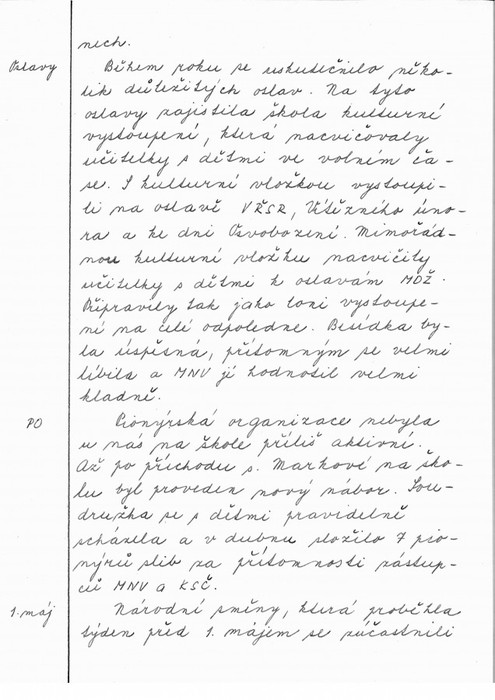 nech.
Oslavy Během roku se uskutečnilo něko-
lik důležitých oslav. Na tyto
oslavy zajistila škola kulturní
vystoupení, která nacvičovaly
učitelky s dětmi ve volném ča-
se. S kulturní vložkou vystoupi-
li na oslavě VŘSR, Vítězného úno-
ra a ke dni Osvobození. Mimořád-
nou kulturní vložku nacvičily
učitelky s dětmi k oslavám MDŽ.
Připravily tak jako loni vystoupe-
ní na celé odpoledne. Besídka by-
la úspěšná, přítomným se velmi
líbila a MNV jí hodnotil velmi
kladně.
PO Pionýrská organizace nebyla
u nás na škole příliš aktivní.
Až po příchodu s. Markové na ško-
lu byl proveden nový nábor. Sou-
družka se s dětmi pravidelně
scházela a v dubnu složilo 7 pio-
nýrů slib za přítomnosti zástup-
ců MNV a KSČ.
1. máj Národní směny, která proběhla
týden před 1. májem se zúčastnili